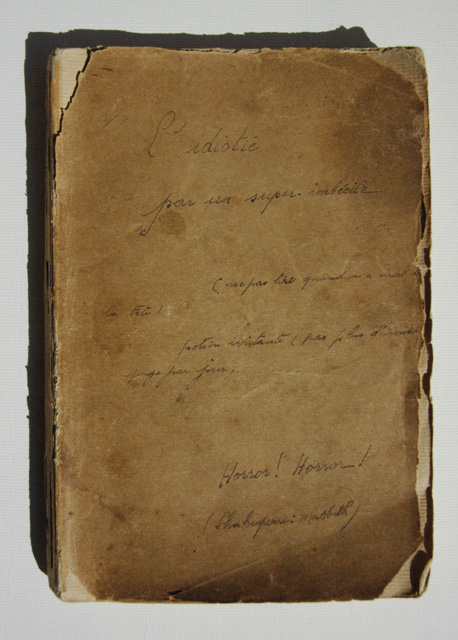 L'idiotie
par un super-imbécile
(ne pas lire quand on a mal
la tête)
potion irritante (pas plus d'une
page par jour)
Horror! Horror!
(Shakespeare: Macbeth)